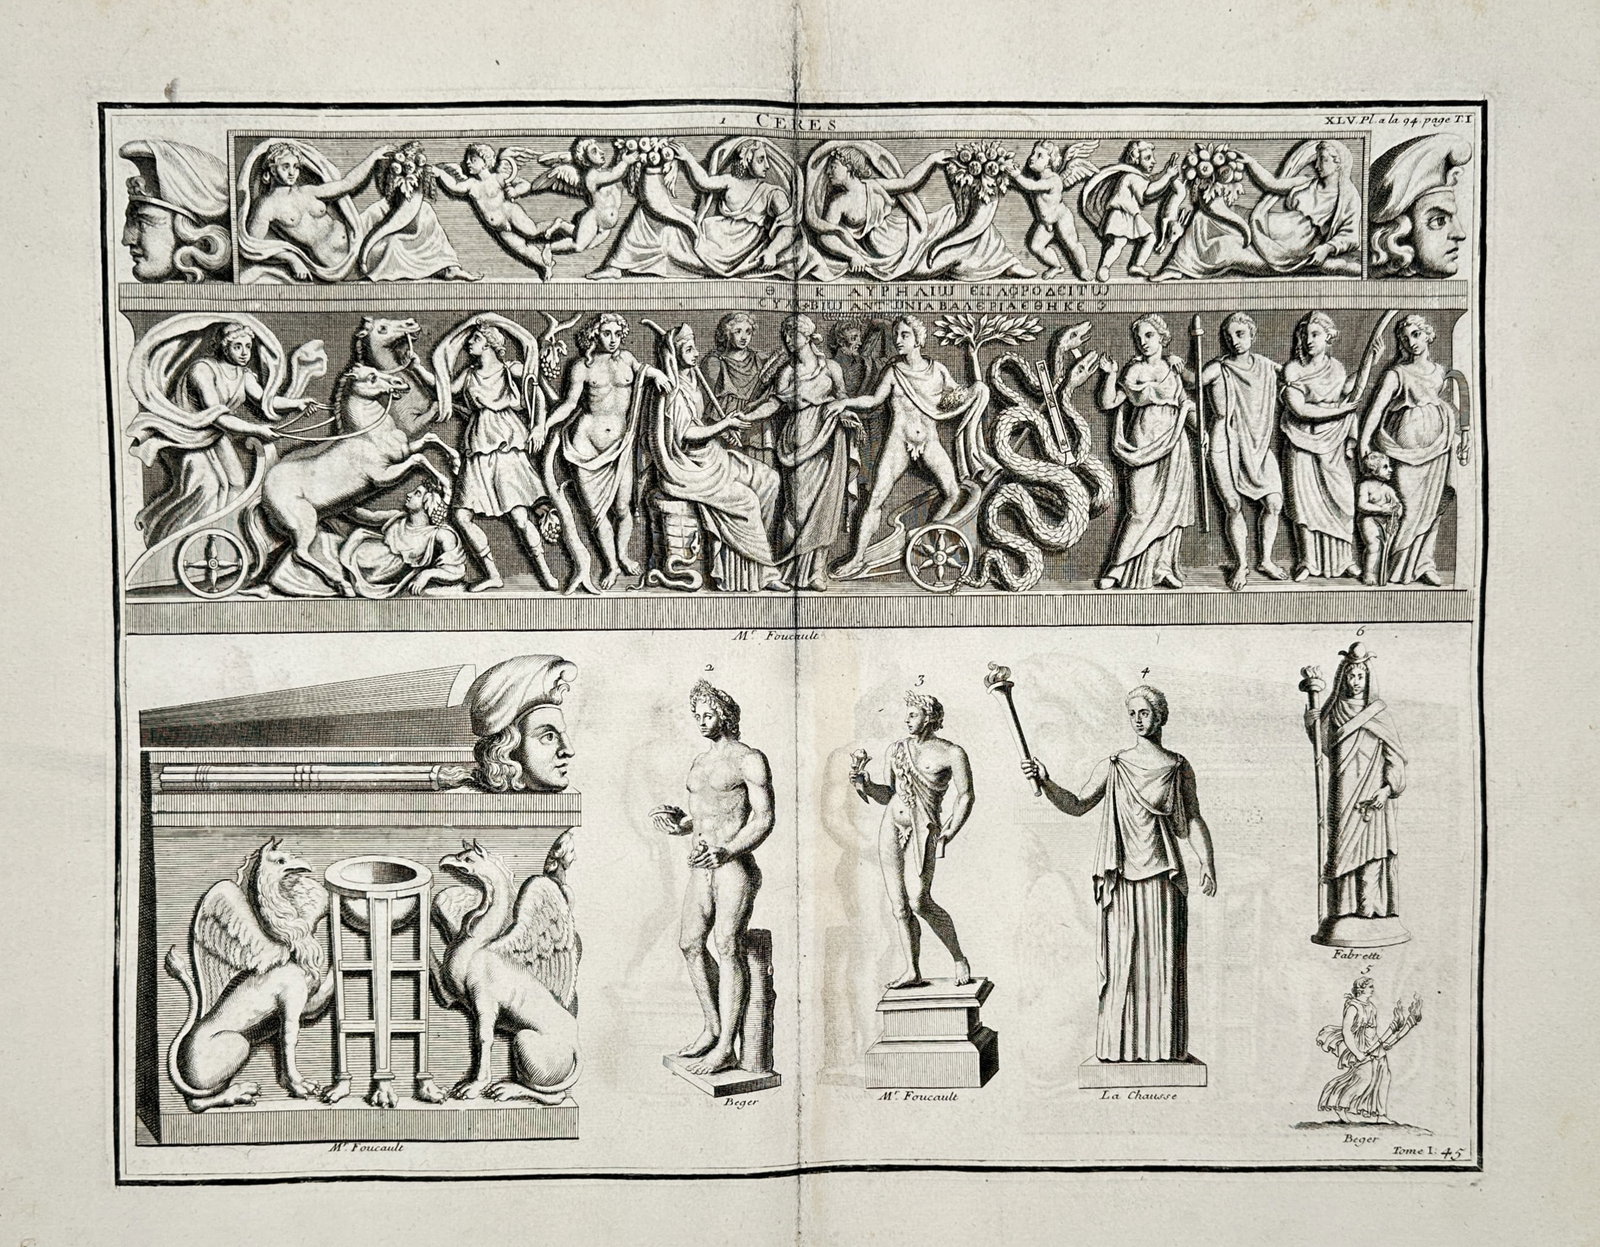 1 CERES
XLV. Pl. a la 94. page T.I
Θ K ΑΥΡΗΛΙΩ ΕΠΑΦΡΟΔΕΙΤΩ
CΥΜΒΙΩ ΑΝΤΩΝΙΑ ΒΑΛΕΡΙΑ ΕΘΗΚΕ
Mr. Foucault
2
3
4
6
Fabretti
5
Beger
Mr. Foucault
La Chausse
Beger
Mr. Foucault
Tome I. 45